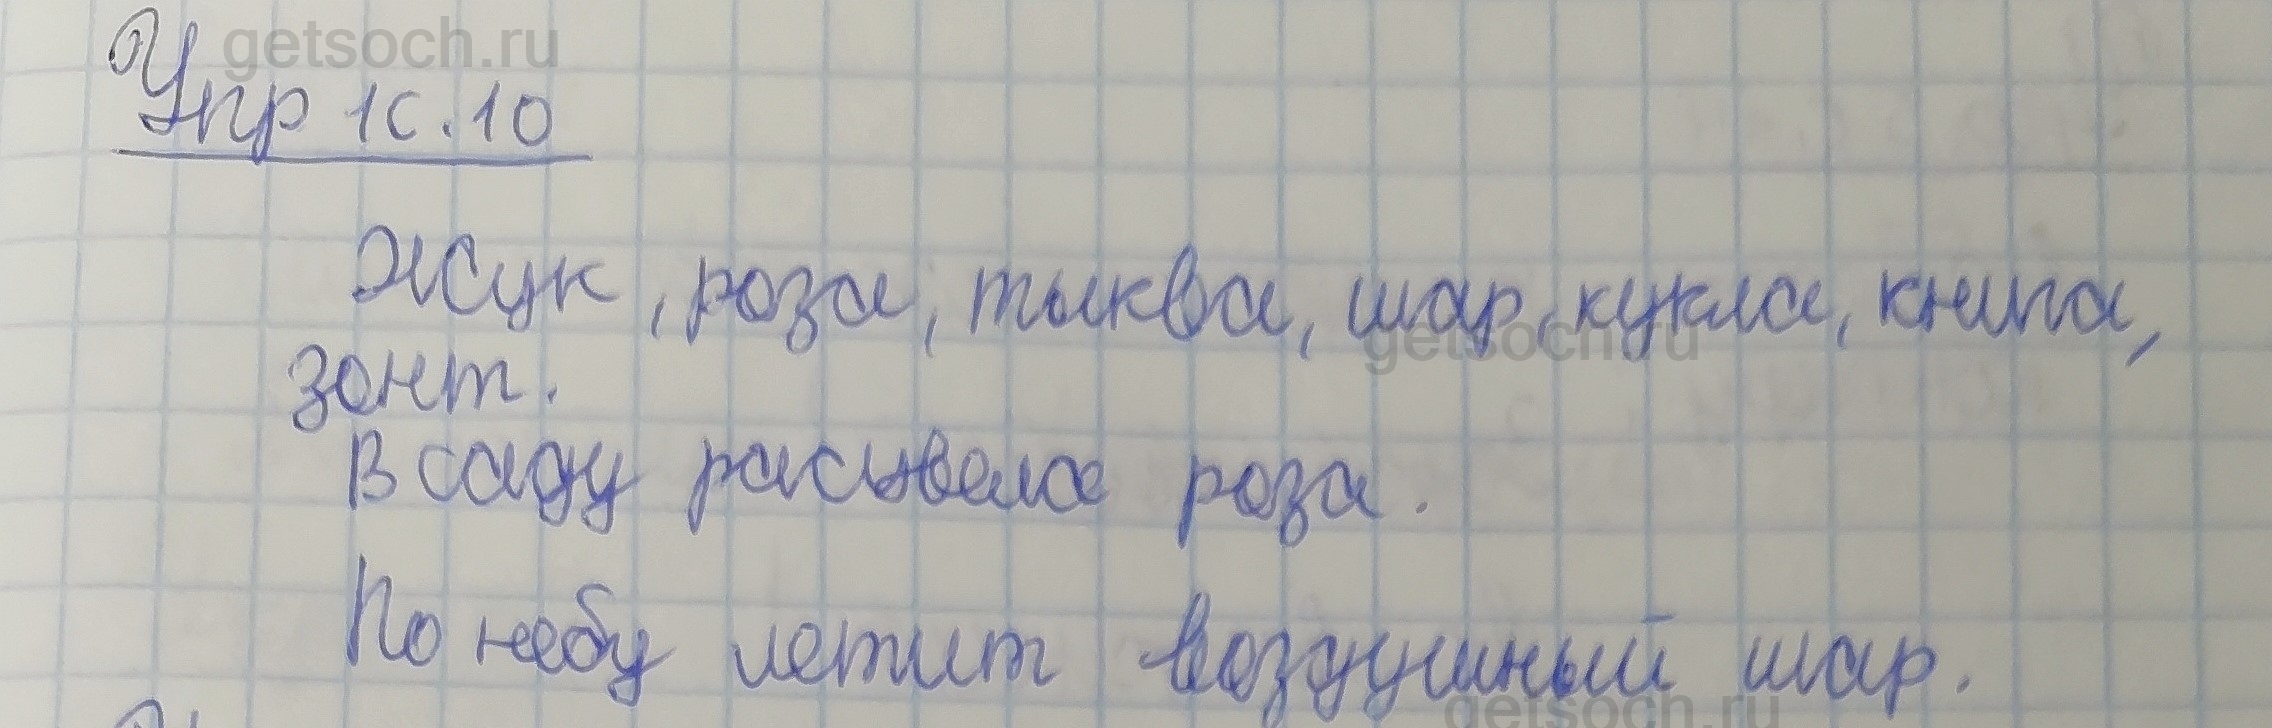 getsoch.ru
Упр 1с.10
Жук, роза, тыква, шар, кукла, книга,
getsoch.ru
зонт.
В саду расцвела роза.
По небу летит воздушный шар.
getsoch.ru